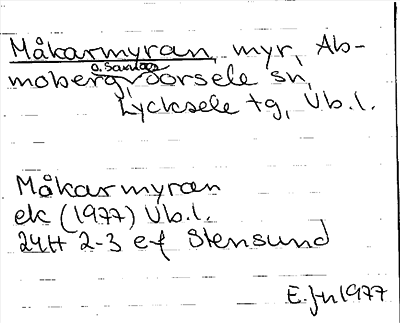 Måkarmyran, myr, Ab-
moberg o. Sandås, Sorsele sn,
Lycksele tg, Vb.l.
Måkarmyran
ek (1977) Vb.l.
24H 2-3 ef Stensund
E.Jn 1977